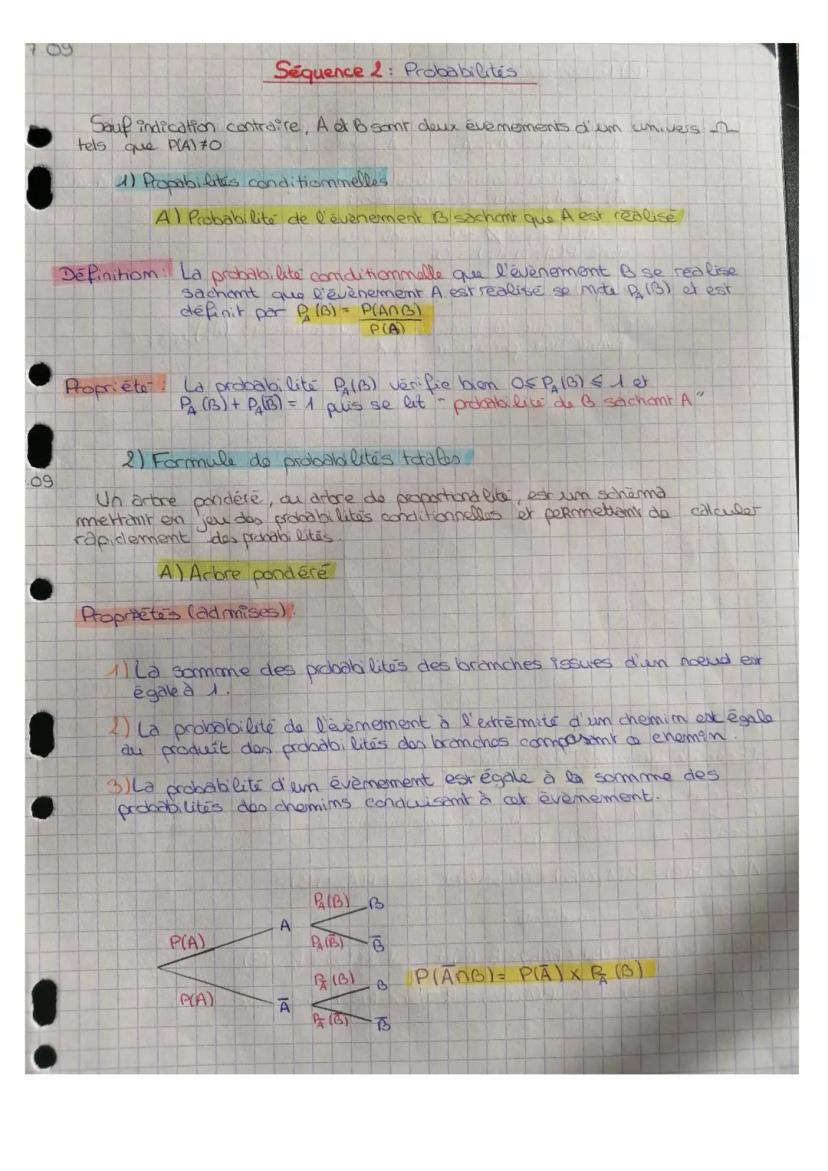 7.09
Séquence 2 : Probabilités
Sauf indication contraire, A et B sont deux évènements d'un univers Ω
tels que P(A) ≠ 0
1) Propabilités conditionnelles
A) Probabilité de l'évènement B sachant que A est réalisé
Définition : La probabilité conditionnelle que l'évènement B se réalise
sachant que l'évènement A est réalisé se note P_A(B) et est
définit par P_A(B) = P(A∩B)
P(A)
Propriété : La probabilité P_A(B) vérifie bien 0 ≤ P_A(B) ≤ 1 et
P_A(B) + P_A(B̅) = 1 puis se lit "probabilité de B sachant A"
2) Formule de probabilités totales
.09
Un arbre pondéré, ou arbre de proportionalité, est un schéma
mettant en jeu des probabilités conditionnelles et permettent de calculer
rapidement des probabilités.
A) Arbre pondéré
Propriétés (admises) :
1) La somme des probabilités des branches issues d'un noeud est
égale à 1.
2) La probabilité de l'évènement à l'extrémité d'un chemin est égale
au produit des probabilités des branches composant ce chemin.
3) La probabilité d'un évènement est égale à la somme des
probabilités des chemins conduisant à cet évènement.
P_A(B) B
A
P(A) P_A(B̅) B̅
P_A̅(B) B P(A̅∩B) = P(A̅) × P_A̅(B)
P(A) A̅
P_A̅(B̅) B̅